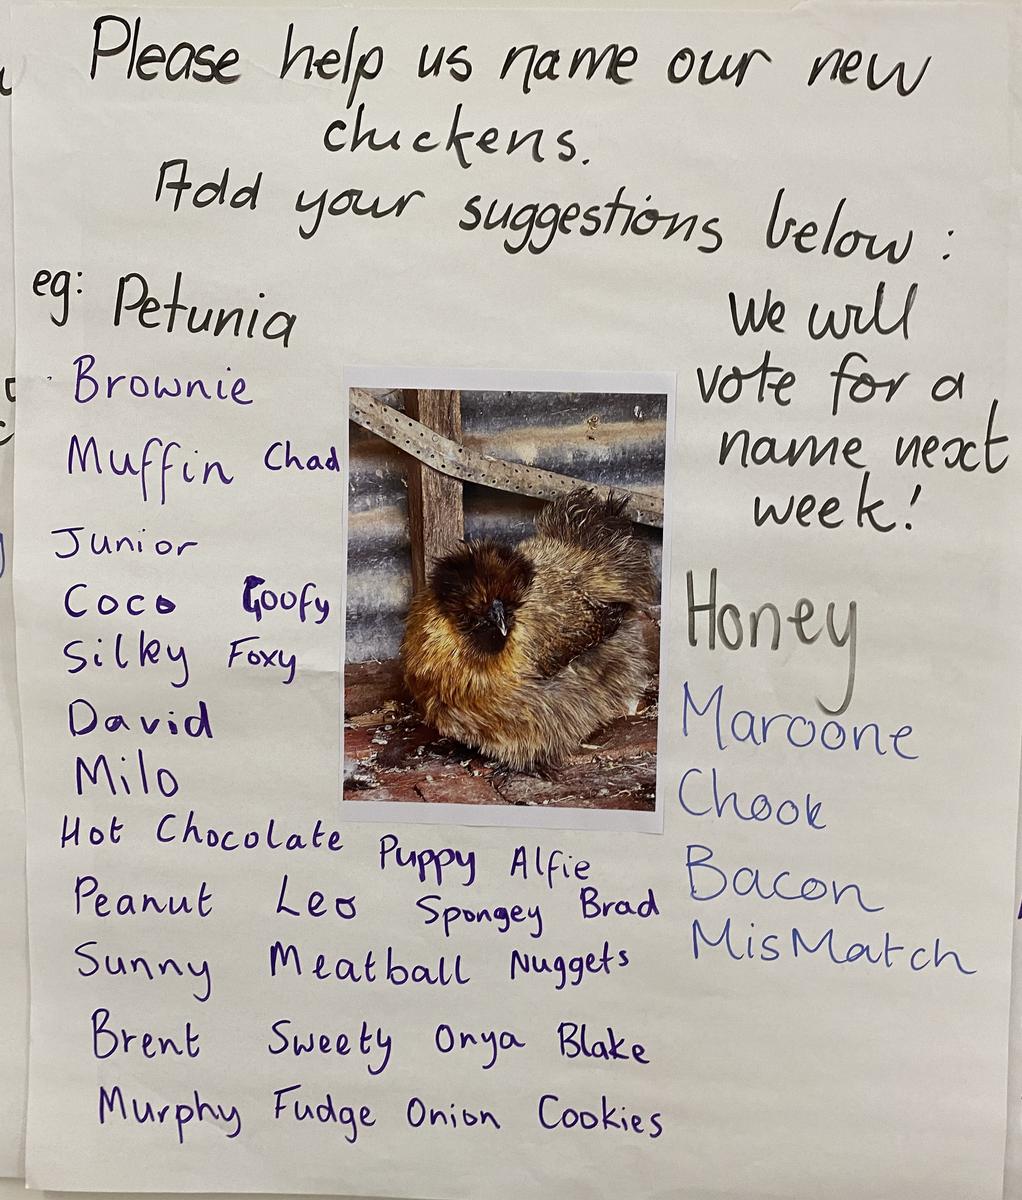 Please help us name our new
chickens.
Add your suggestions below :
eg: Petunia
Brownie
Muffin Chad
Junior
Coco Goofy
Silky Foxy
David
Milo
Hot Chocolate
Puppy Alfie
Peanut Leo Spongey Brad
Sunny Meatball Nuggets
Brent Sweety Onya Blake
Murphy Fudge Onion Cookies
We will
vote for a
name next
week!
Honey
Maroone
Chook
Bacon
MisMatch